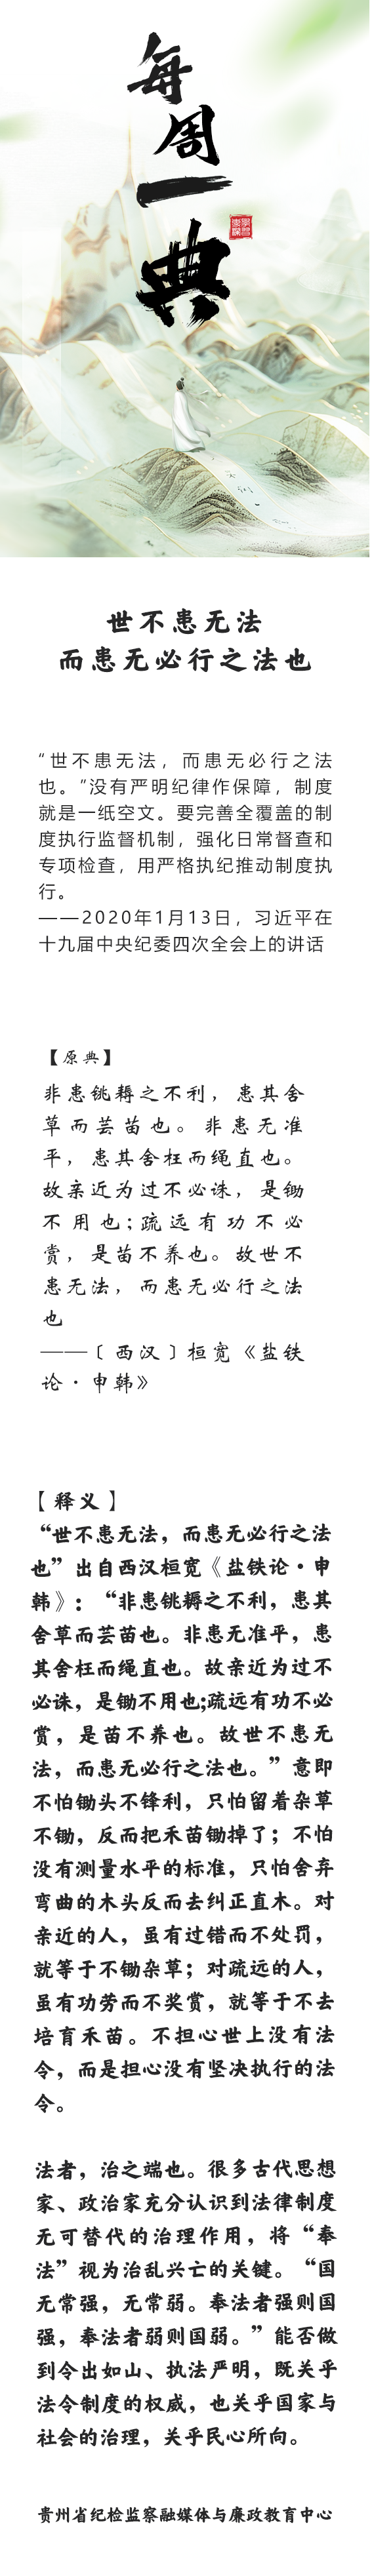 每
周
一
典
世不患无法
而患无必行之法也
“世不患无法，而患无必行之法
也。”没有严明纪律作保障，制度
就是一纸空文。要完善全覆盖的制
度执行监督机制，强化日常督查和
专项检查，用严格执纪推动制度执
行。
——2020年1月13日，习近平在
十九届中央纪委四次全会上的讲话
【原典】
非患铫耨之不利，患其舍
草而芸苗也。非患无准
平，患其舍枉而绳直也。
故亲近为过不必诛，是锄
不用也;疏远有功不必
赏，是苗不养也。故世不
患无法，而患无必行之法
也
——〔西汉〕桓宽《盐铁
论·申韩》
【释义】
“世不患无法，而患无必行之法
也”出自西汉桓宽《盐铁论·申
韩》：“非患铫耨之不利，患其
舍草而芸苗也。非患无准平，患
其舍枉而绳直也。故亲近为过不
必诛，是锄不用也;疏远有功不必
赏，是苗不养也。故世不患无
法，而患无必行之法也。”意即
不怕锄头不锋利，只怕留着杂草
不锄，反而把禾苗锄掉了；不怕
没有测量水平的标准，只怕舍弃
弯曲的木头反而去纠正直木。对
亲近的人，虽有过错而不处罚，
就等于不锄杂草；对疏远的人，
虽有功劳而不奖赏，就等于不去
培育禾苗。不担心世上没有法
令，而是担心没有坚决执行的法
令。
法者，治之端也。很多古代思想
家、政治家充分认识到法律制度
无可替代的治理作用，将“奉
法”视为治乱兴亡的关键。“国
无常强，无常弱。奉法者强则国
强，奉法者弱则国弱。”能否做
到令出如山、执法严明，既关乎
法令制度的权威，也关乎国家与
社会的治理，关乎民心所向。
贵州省纪检监察融媒体与廉政教育中心